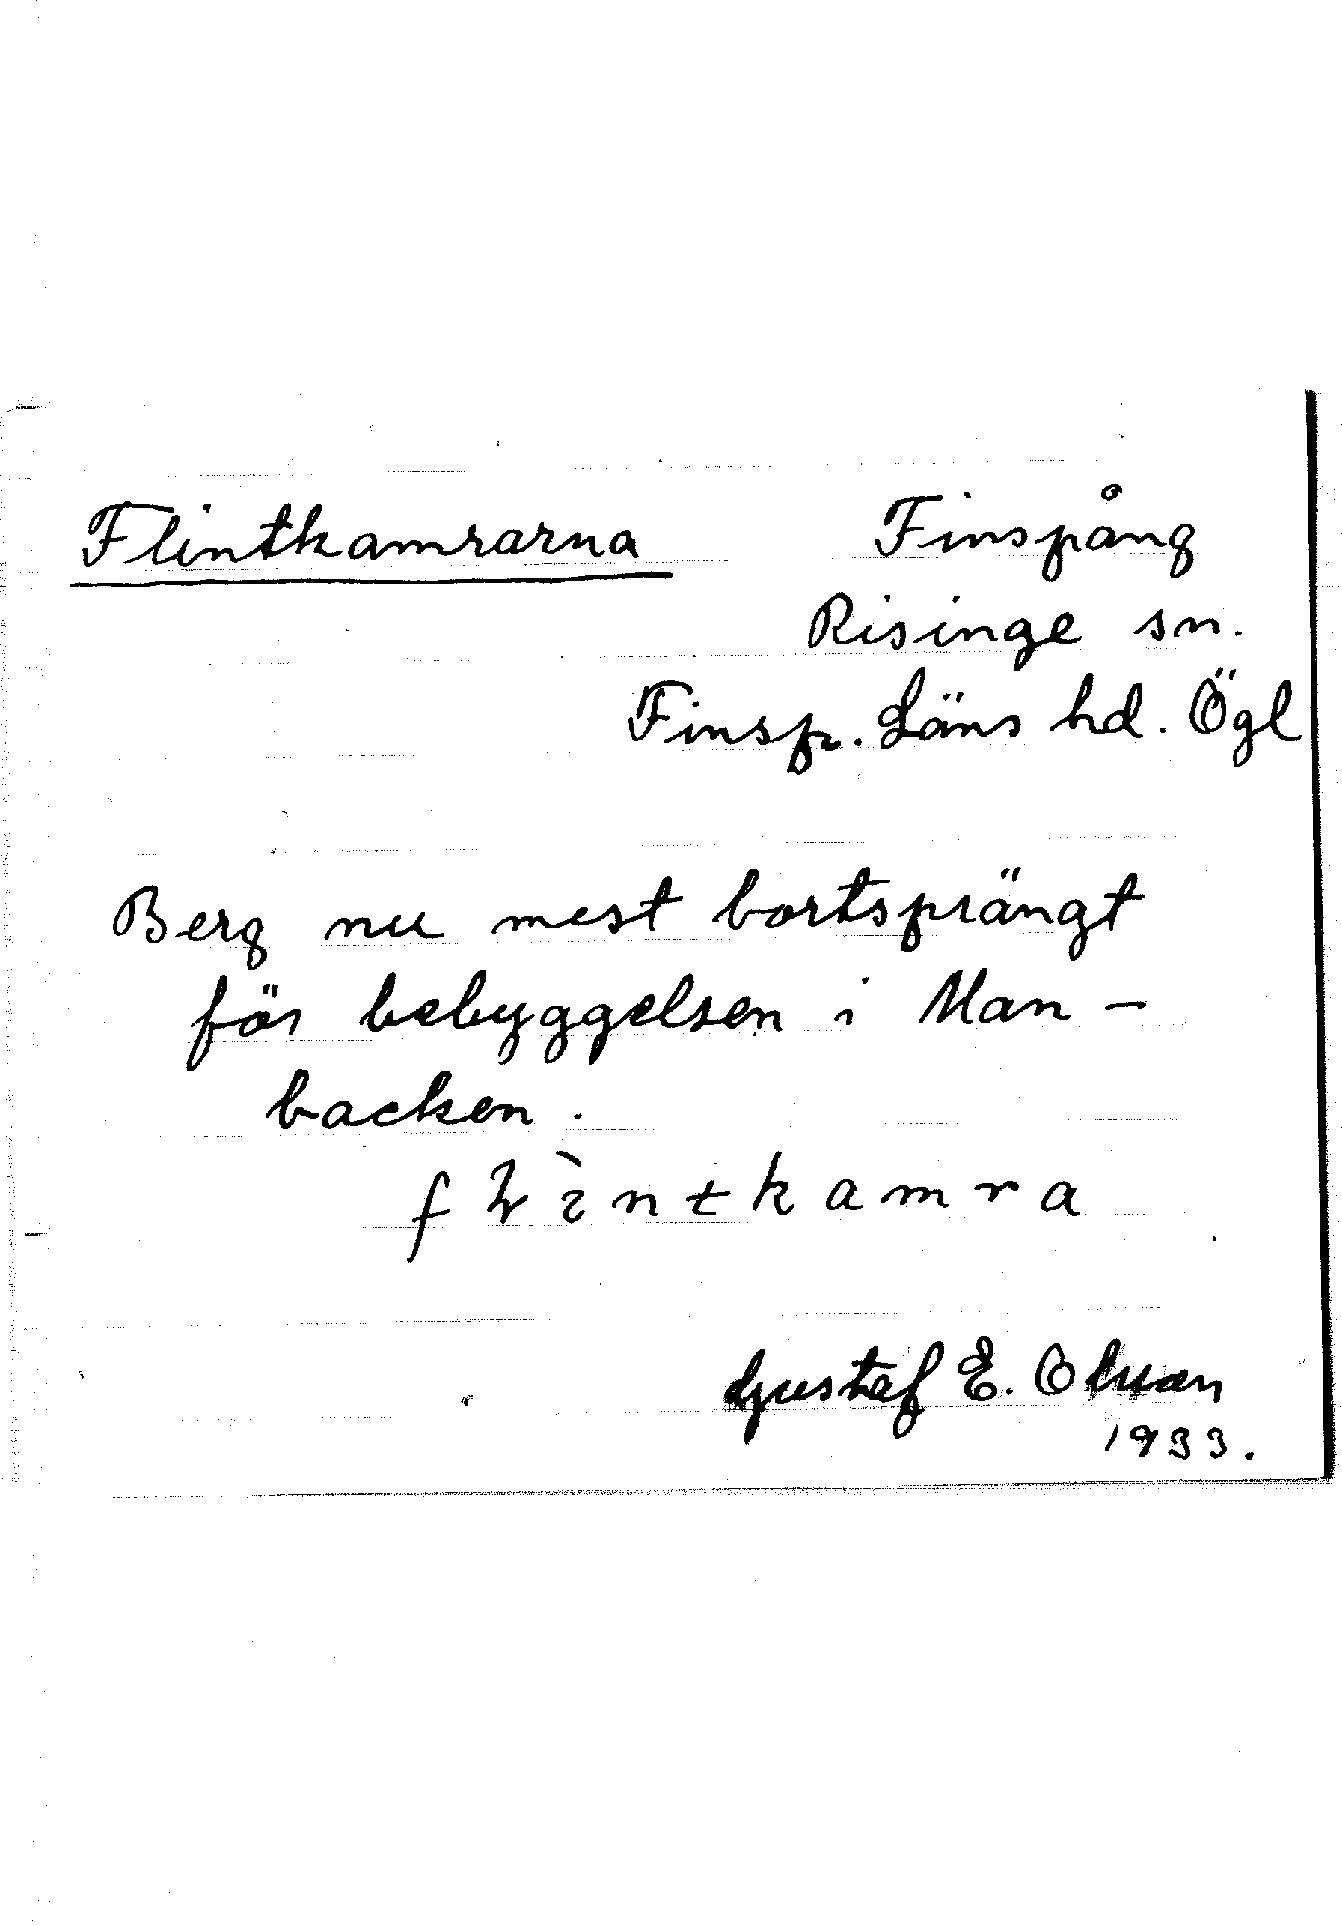 Flintkamrarna Finspång
Risinge sn.
Finsp. Läns hd. Ögl
Berg nu mest bortsprängt
för bebyggelsen i Man-
backen.
flìntkamra
Gustaf E. Olsson
1933.